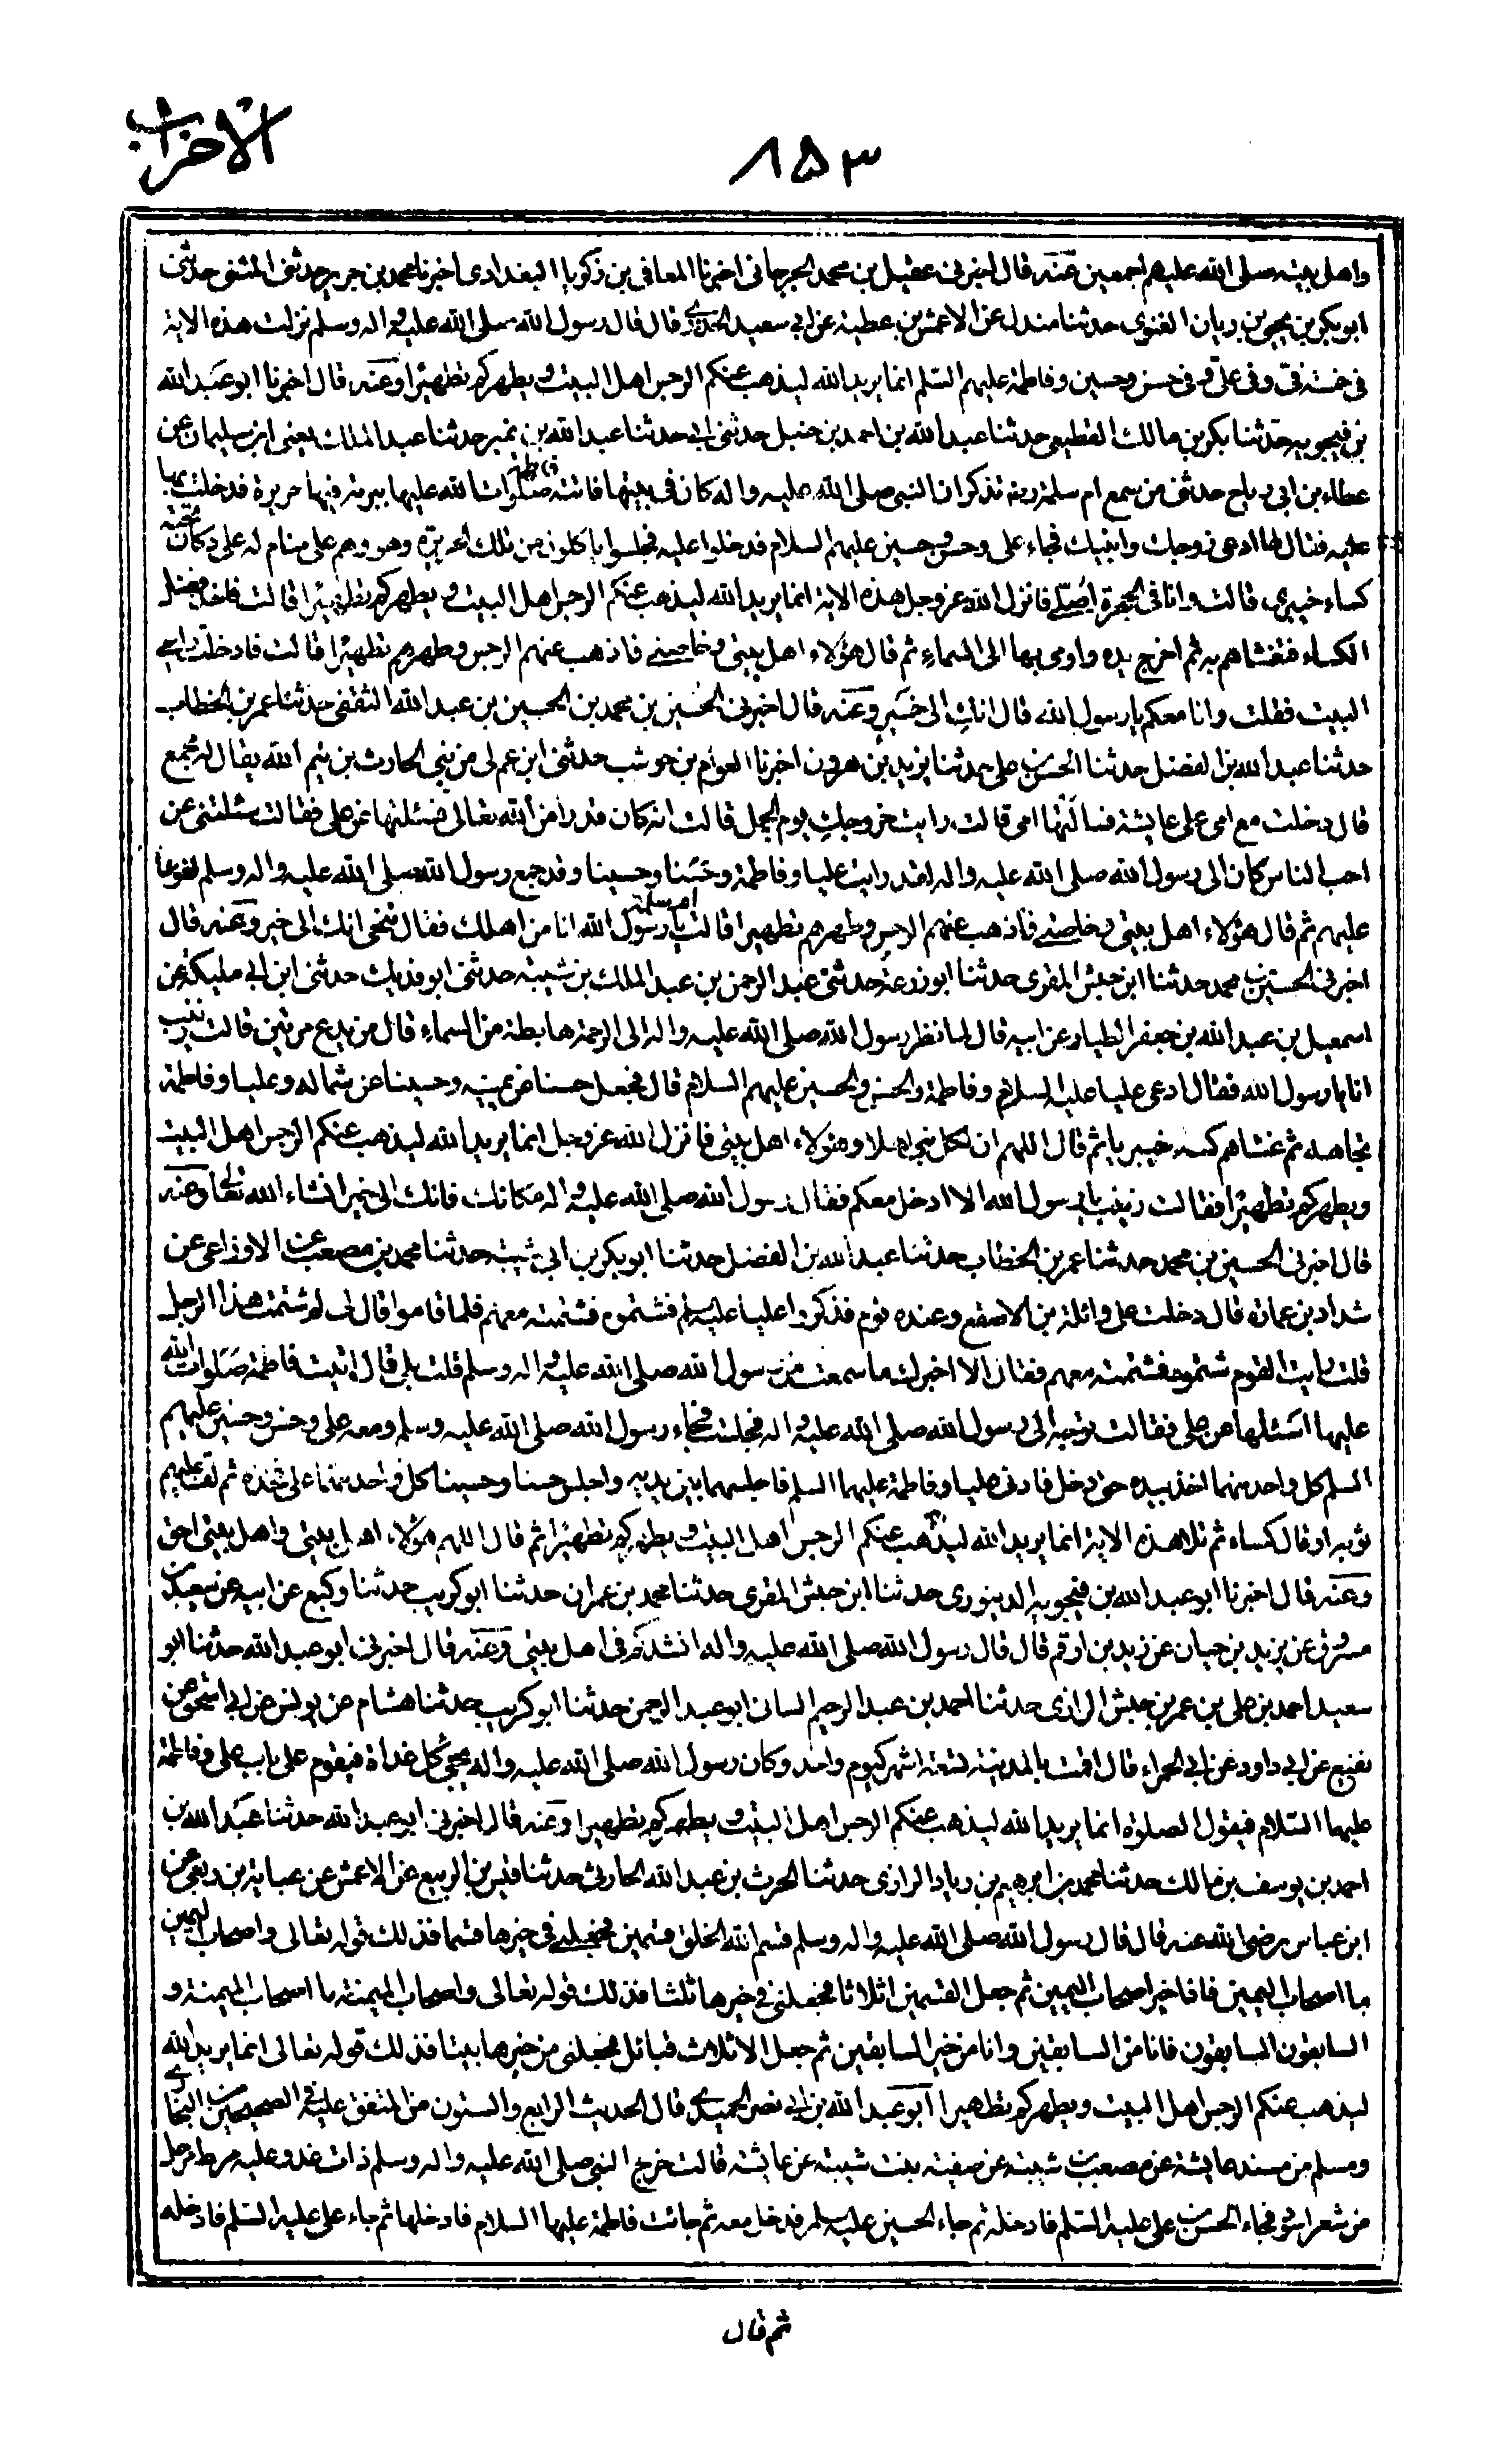 الاحزاب
٨٥٣
واهل بيته صلى الله عليهم اجمعين وعنه قال اخبرنى عقيل بن محمد الجرجانى اخبرنا المعافى بن زكريا البغدادى اخبرنا محمد بن جرير حدثنى المثنى حدثنى
ابو بكر بن يحيى بن ريان الغنوى حدثنا مندل عن الاعمش بن عطية عن ابى سعيد الخدرى قال قال رسول الله صلى الله عليه واله وسلم نزلت هذه الاية
فى خمسة فىّ وفى على وفى حسن وحسين وفاطمة عليهم السلم انما يريد الله ليذهب عنكم الرجس اهل البيت ويطهركم تطهيرا وعنه قال اخبرنا ابو عبد الله
بن فيجويه حدثنا بكر بن مالك القطيعى حدثنا عبد الله بن احمد بن حنبل حدثنى ابى حدثنا عبد الله بن نمير حدثنا عبد الملك يعنى ابن سليمان عن
عطاء بن ابى رباح حدثنى من سمع ام سلمة رضه تذكر ان النبى صلى الله عليه واله كان فى بيتها فاتته فاطمة صلوات الله عليها ببرمة فيها حريرة فدخلت بها
عليه فقال لها ادعى زوجك وابنيك فجاء على وحسن وحسين عليهم السلام فدخلوا عليه فجلسوا ياكلون من تلك الحريرة وهو وهم على منام له على دكان تحته
كساء خيبرى قالت وانا فى الحجرة اصلى فانزل الله عز وجل هذه الاية انما يريد الله ليذهب عنكم الرجس اهل البيت ويطهركم تطهيرا قالت فاخذ فضل
الكساء فغشاهم به ثم اخرج يده واومى بها الى السماء ثم قال هؤلاء اهل بيتى وخاصتى فاذهب عنهم الرجس وطهرهم تطهيرا قالت فادخلت راسى
البيت فقلت وانا معكم يا رسول الله قال انك الى خير وعنه قال اخبرنى الحسين بن محمد بن الحسين بن عبد الله الثقفى حدثنا عمر بن الخطاب
حدثنا عبد الله بن الفضل حدثنا الحسن بن على حدثنا يزيد بن هرون اخبرنا العوام بن حوشب حدثنى ابن عم لى من بنى الحارث بن تيم الله يقال له مجمع
قال دخلت مع امى على عايشة فسالتها امى قالت رايت خروجك يوم الجمل قالت انه كان قدرا من الله تعالى فسئلتها عن على فقالت سئلتنى عن
احب الناس كان الى رسول الله صلى الله عليه واله لقد رايت عليا وفاطمة وحسنا وحسينا وقد جمع رسول الله صلى الله عليه واله وسلم لفوعا
عليهم ثم قال هؤلاء اهل بيتى وخاصتى فاذهب عنهم الرجس وطهرهم تطهيرا قالت ام سلمة يا رسول الله انا من اهلك فقال تنحى انك الى خير وعنه قال
اخبرنى الحسين بن محمد حدثنا ابن حبش المقرى حدثنا ابو زرعة حدثنى عبد الرحمن بن عبد الملك بن شيبة حدثنى ابو فديك حدثنى ابن ابى مليكة عن
اسمعيل بن عبد الله بن جعفر الطيار عن ابيه قال لما نظر رسول الله صلى الله عليه واله الى الرحمة هابطة من السماء قال من يدع مرتين قالت زينب
انا يا رسول الله فقال ادعى عليا عليه السلام وفاطمة والحسن والحسين عليهم السلام قال فجعل حسنا عن يمينه وحسينا عن شماله وعليا وفاطمة
تجاهه ثم غشاهم كساء خيبريا ثم قال اللهم ان لكل نبى اهلا وهؤلاء اهل بيتى فانزل الله عز وجل انما يريد الله ليذهب عنكم الرجس اهل البيت
ويطهركم تطهيرا فقالت زينب يا رسول الله الا ادخل معكم فقال رسول الله صلى الله عليه واله مكانك فانك الى خير انشاء الله تعالى وعنه
قال اخبرنى الحسين بن محمد حدثنا عمر بن الخطاب حدثنا عبد الله بن الفضل حدثنا ابو بكر بن ابى شيبة حدثنا محمد بن مصعب عن الاوزاعى عن
شداد بن عمارة قال دخلت على واثلة بن الاصقع وعنده قوم فذكروا عليا عليه السلم فشتموه فشتمته معهم فلما قاموا قال لى لم شتمت هذا الرجل
قلت رايت القوم شتموه فشتمته معهم فقال الا اخبرك ما سمعت من رسول الله صلى الله عليه واله وسلم قلت بلى قال اتيت فاطمة صلوات الله
عليها اسئلها عن على فقالت توجه الى رسول الله صلى الله عليه واله فجلست فجاء رسول الله صلى الله عليه وسلم ومعه على وحسن وحسين عليهم
السلم كل واحد منهما اخذ بيده حتى دخل فادنى عليا وفاطمة عليهما السلم فاجلسهما بين يديه واجلس حسنا وحسينا كل واحد منهما على فخذه ثم لف عليهم
ثوبه او قال كساء ثم تلا هذه الاية انما يريد الله ليذهب عنكم الرجس اهل البيت ويطهركم تطهيرا ثم قال اللهم هؤلاء اهل بيتى واهل بيتى احق
وعنه قال اخبرنا ابو عبد الله بن فيجويه الدينورى حدثنا ابن حبش المقرى حدثنا محمد بن عمران حدثنا ابو كريب حدثنا وكيع عن ابيه عن سعيد بن
مسروق عن يزيد بن حيان عن زيد بن ارقم قال قال رسول الله صلى الله عليه واله انشدكم فى اهل بيتى وعنه قال اخبرنى ابو عبد الله حدثنا ابو
سعيد احمد بن على بن عمر بن حبش الرازى حدثنا احمد بن عبد الرحيم السانى ابو عبد الرحمن حدثنا ابو كريب حدثنا هشام عن يونس عن ابى اسحق عن
نفيع عن ابى داود عن ابى الحمراء قال اقمت بالمدينة تسعة اشهر كيوم واحد وكان رسول الله صلى الله عليه واله يجئ كل غداة فيقوم على باب على وفاطمة
عليهما السلام فيقول الصلوة انما يريد الله ليذهب عنكم الرجس اهل البيت ويطهركم تطهيرا وعنه قال اخبرنى ابو عبد الله حدثنا عبد الله بن
احمد بن يوسف بن مالك حدثنا محمد بن ابرهيم بن زياد الرازى حدثنا الحرث بن عبد الله الحارثى حدثنا قيس بن الربيع عن الاعمش عن عباية بن ربعى عن
ابن عباس رضى الله عنه قال قال رسول الله صلى الله عليه واله وسلم قسم الله الخلق قسمين فجعلنى فى خيرها قسما فذلك قوله تعالى واصحاب اليمين
ما اصحاب اليمين فانا خير اصحاب اليمين ثم جعل القسمين اثلاثا فجعلنى فى خيرها ثلثا فذلك قوله تعالى واصحاب الميمنة ما اصحاب الميمنة و
السابقون السابقون فانا من السابقين وانا من خير السابقين ثم جعل الاثلاث قبائل فجعلنى من خيرها بيتا فذلك قوله تعالى انما يريد الله
ليذهب عنكم الرجس اهل البيت ويطهركم تطهيرا ابو عبد الله بن ابى نصر الحميدى قال الحديث الرابع والستون من المتفق عليه فى الصحيحين من البخارى
ومسلم من مسند عايشة عن مصعب بن شيبة عن صفية بنت شيبة عن عايشة قالت خرج النبى صلى الله عليه واله وسلم ذات غدو عليه مرط مرجل
من شعر اسود فجاء الحسن بن على عليه السلم فادخله ثم جاء الحسين عليه السلم فدخل معه ثم جائت فاطمة عليها السلام فادخلها ثم جاء على عليه السلم فادخله
ثم قال